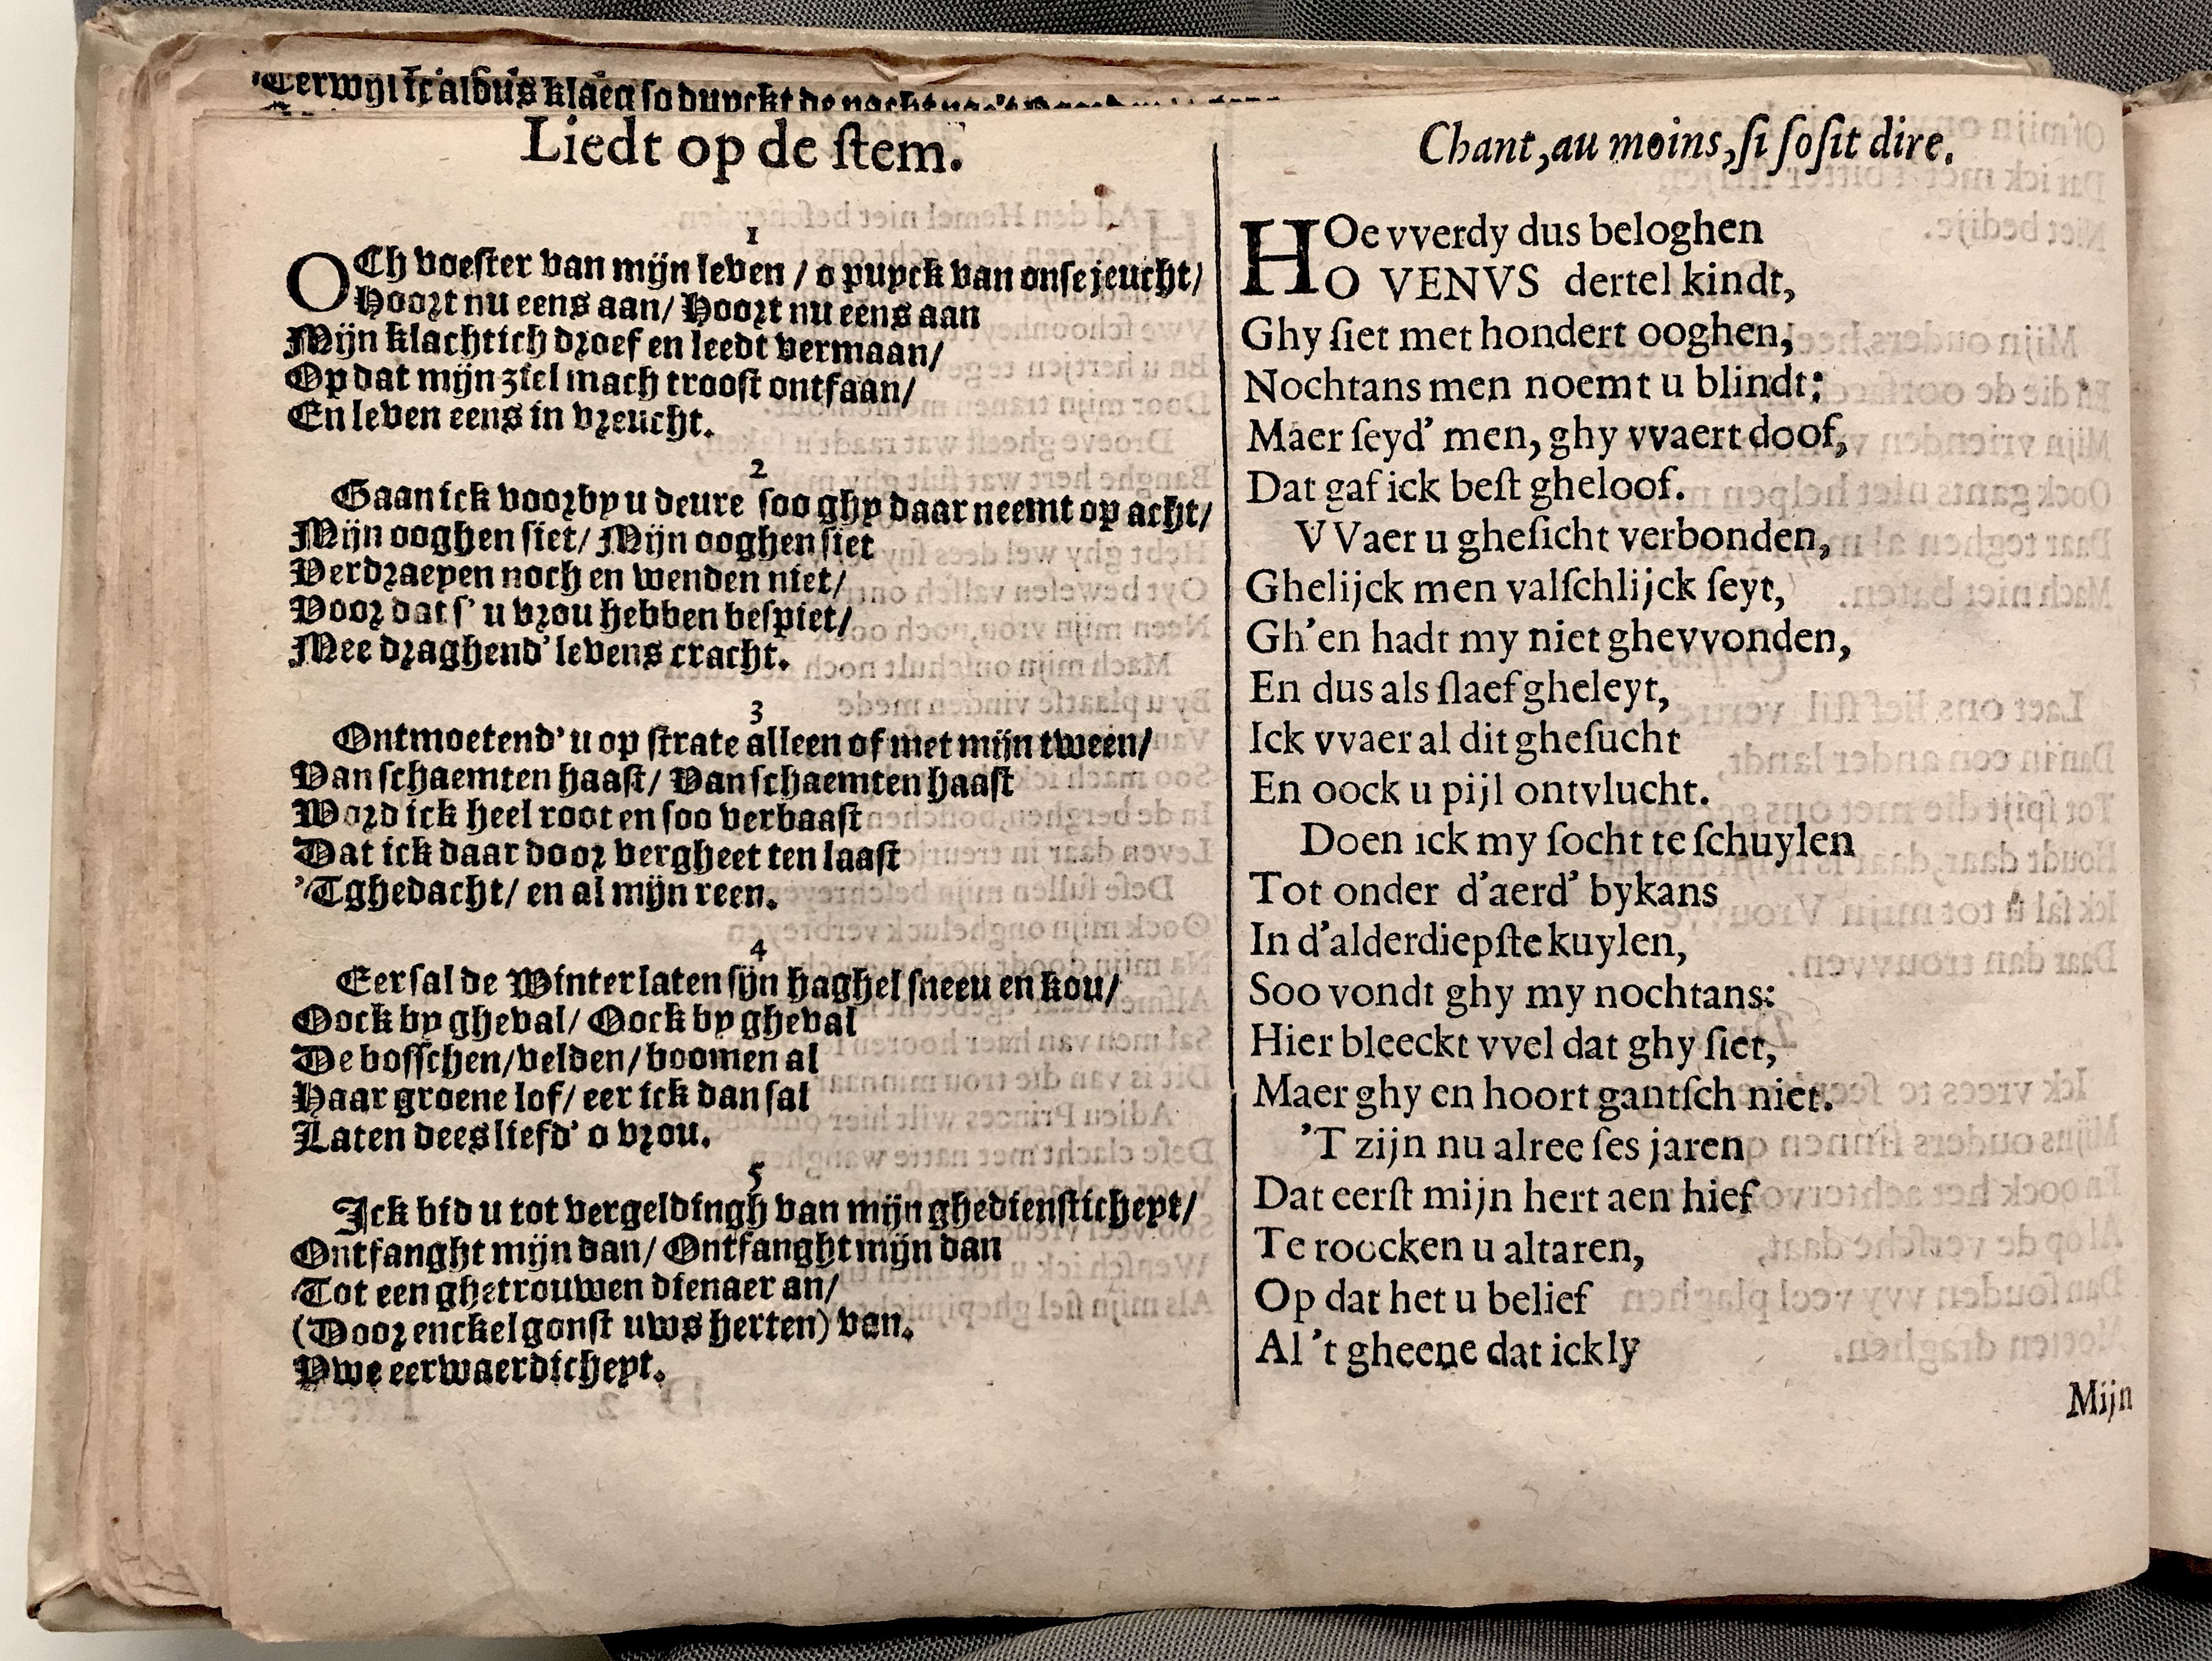 Terwyl ick aldus klaeg so dunckt de nacht
Liedt op de ſtem.
1
OCh voeſter van mijn leven / o puyck van onſe jeucht/
Hoort nu eens aan/ Hoort nu eens aan
Mijn klachtich droef en leedt vermaan/
Op dat mijn ziel mach trooſt ontfaan/
En leven eens in vreucht.
2
Gaan ick voorby u deure ſoo ghy daar neemt op acht/
Mijn ooghen ſiet/ Mijn ooghen ſiet
Verdraeyen noch en wenden niet/
Voor dat ſ' u vrou hebben beſpiet/
Mee draghend' levens cracht.
3
Ontmoetend' u op ſtrate alleen of met mijn tween/
Van ſchaemten haaſt/ Van ſchaemten haaſt
Word ick heel root en ſoo verbaaſt
Dat ick daar door vergheet ten laaſt
'Tghedacht/ en al mijn reen.
4
Eer ſal de Winter laten ſijn haghel ſneeu en kou/
Oock by gheval/ Oock by gheval
De boſſchen/velden/boomen al
Haar groene lof/ eer ick dan ſal
Laten dees liefd' o vrou.
5
Ick bid u tot vergeldingh van mijn ghedienſticheyt/
Ontfanght mijn dan/ Ontfanght mijn dan
Tot een ghetrouwen dienaer an/
(Door enckel gonſt uws herten) van.
Vwe eerwaerdicheyt.
Chant,au moins,ſi ſoſit dire.
HOe vverdy dus beloghen
O VENVS dertel kindt,
Ghy ſiet met hondert ooghen;
Nochtans men noemt u blindt:
Maer ſeyd' men, ghy vvaert doof,
Dat gaf ick beſt gheloof.
VVaer u gheſicht verbonden,
Ghelijck men valſchlijck ſeyt,
Gh'en hadt my niet ghevvonden,
En dus als ſlaef gheleyt,
Ick vvaer al dit gheſucht
En oock u pijl ontvlucht.
Doen ick my ſocht te ſchuylen
Tot onder d'aerd' bykans
In d'alderdiepſte kuylen,
Soo vondt ghy my nochtans:
Hier bleeckt vvel dat ghy ſiet,
Maer ghy en hoort gantſch niet.
'T zijn nu alree ſes jaren
Dat eerſt mijn hert aen hief
Te roocken u altaren,
Op dat het u belief
Al 't gheene dat ickly
Mijn